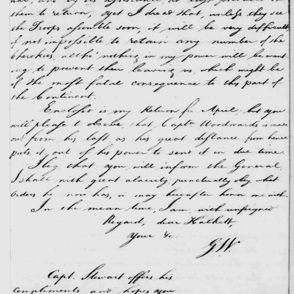 them to return, yet I dread that, unless they see
the Troops assemble soon, it will be very difficult
if not impossible to retain any number of the
Cherokees, altho' nothing in my power will be want-
ing, to prevent them leaving us which might be
of the most fatal consequence to this part of
the Continent.
Enclosed is my Return for April. You
will please to observe, that Captn Woodward's is
from his last, as his great distance from hence
puts it out of his power to send it in due time.
I beg that you will inform the General
I shall with great alacrity punctually obey what
orders he now has, or may hereafter honor me with.
In the mean time, I am, with unfeigned
Regard, dear Halkett,
Your &c.
GW.
Capt. Stewart offers his
compliments and hopes you